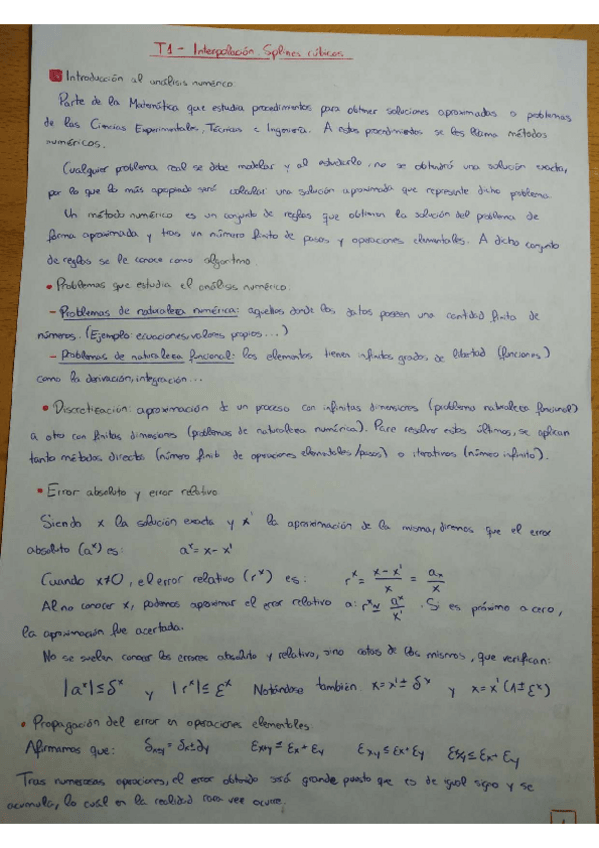 T1 - Interpolación. Splines cúbicos
Introducción al análisis numérico.
Parte de la Matemática que estudia procedimientos para obtener soluciones aproximadas a problemas
de las Ciencias Experimentales, Técnicas e Ingeniería. A estos procedimientos se les llama métodos
numéricos.
Cualquier problema real se debe modelar y al estudiarlo no se obtendrá una solución exacta,
por lo que lo más apropiado será calcular una solución aproximada que represente dicho problema.
Un método numérico es un conjunto de reglas que obtienen la solución del problema de
forma aproximada y tras un número finito de pasos y operaciones elementales. A dicho conjunto
de reglas se le conoce como algoritmo.
• Problemas que estudia el análisis numérico.
- Problemas de naturaleza numérica: aquellos donde los datos poseen una cantidad finita de
números. (Ejemplo: ecuaciones, valores propios...)
- Problemas de naturaleza funcional: los elementos tienen infinitos grados de libertad (funciones)
como la derivación, integración...
• Discretización: aproximación de un proceso con infinitas dimensiones (problema naturaleza funcional)
a otro con finitas dimensiones (problemas de naturaleza numérica). Para resolver estos últimos, se aplican
tanto métodos directos (número finito de operaciones elementales/pasos) o iterativos (número infinito).
• Error absoluto y error relativo
Siendo x la solución exacta y x' la aproximación de la misma, diremos que el error
absoluto (aˣ) es: aˣ = x - x'
Cuando x≠0, el error relativo (rˣ) es: rˣ = (x - x')/x = aₓ/x
Al no conocer x, podemos aproximar el error relativo a: rˣ ≈ aˣ/x'. Si es próximo a cero,
la aproximación fue acertada.
No se suelen conocer los errores absoluto y relativo, sino cotas de los mismos, que verifican:
|aˣ| ≤ δˣ y |rˣ| ≤ Ɛˣ Notándose también x = x' ± δˣ y x = x'(1 ± Ɛˣ)
• Propagación del error en operaciones elementales
Afirmamos que: Ɛx+y ≤ Ɛx + Ɛy Ɛx·y ≤ Ɛx + Ɛy Ɛx/y ≤ Ɛx + Ɛy
Tras numerosas operaciones, el error obtenido será grande puesto que es de igual signo y se
acumula, lo cual en la realidad rara vez ocurre.
1